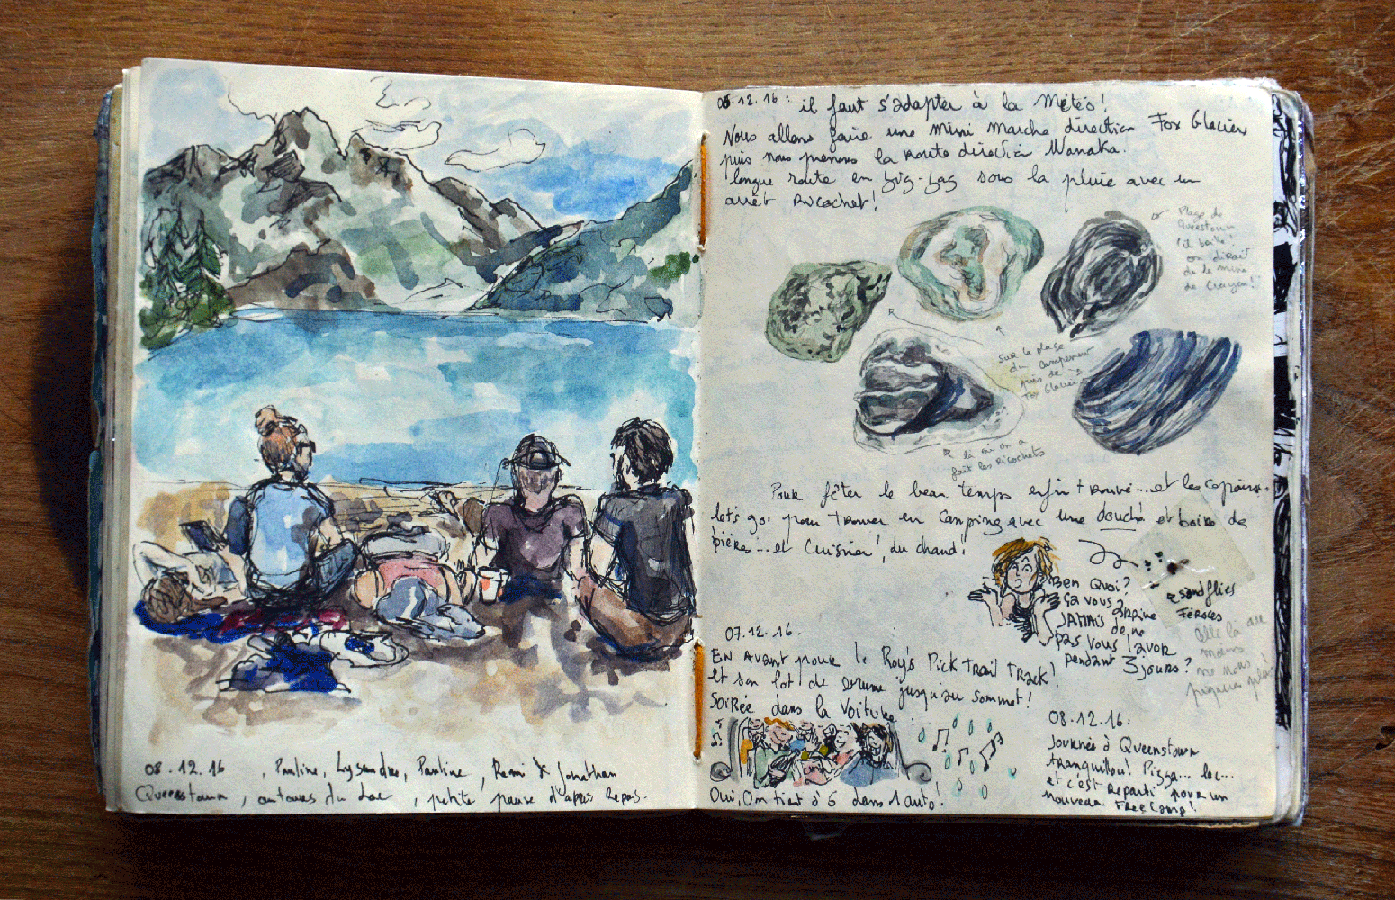 08.12.16 , Pauline, Lysandre, Pauline, Remi & Jonathan
Queenstown, autour du Lac, petite pause d'après Repas.
06.12.16: il faut s'adapter à la Météo!
Nous allons faire une mini marche direction Fox Glacier
puis nous prenons la route direction Wanaka.
longue route en zig-zag sous la pluie avec un
arrêt Ricochet!
Plage de
Queenstown
on dirait
de la mine
de Crayon!!
sur la plage
du Campement
près de
Fox Glacier
là où on a
fait les Ricochets
Pour fêter le beau temps enfin trouvé...et les copains.
let's go pour trouver un Camping avec une douche et boire de
bières...et Cuisiner, du chaud!
Ben Quoi?
ça vous
JAMAIS
de ne
pas vous laver
pendant 3 jours?
sandflies
Féroces
07.12.16.
EN AVANT pour le Roy's Pick Trail Track!
et son lot de brume jusqu'au sommet!
SOIRÉE dans la voiture
Oui, On tient à 6 dans l'auto!
08.12.16.
Journée à Queenstown
tranquillou! Pizza... lac...
et c'est reparti pour un
nouveau FreeCamp!